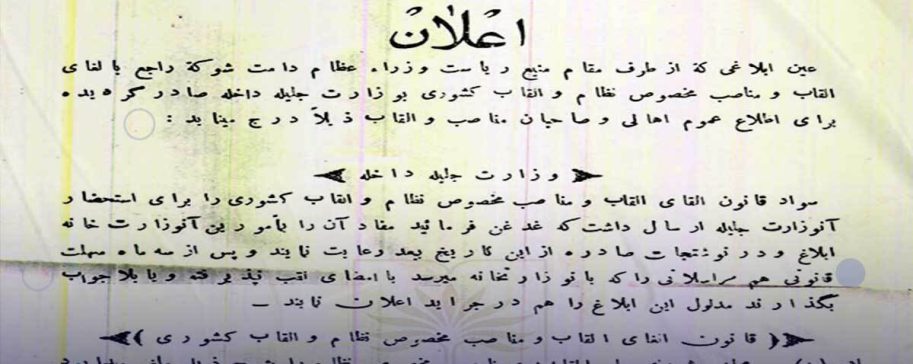 اعلان
عین ابلاغی که از طرف مقام منیع ریاست وزراء عظام دامت شوکة راجع بالغای
القاب و مناصب مخصوص نظام و القاب کشوری بوزارت جلیله داخله صادر گردیده
برای اطلاع عموم اهالی و صاحبان مناصب و القاب ذیلاً درج مینماید :
وزارت جلیله داخله
سواد قانون القای القاب و مناصب مخصوص نظام و القاب کشوری را برای استحضار
آنوزارت جلیله ارسال داشت که غدغن فرمائید مفاد آن را بمأمورین آنوزارت خانه
ابلاغ و در نوشتجات صادره از این تاریخ ببعد رعایت نمایند و پس از سه ماه مهلت
قانونی هم مراسلاتی را که بانوزارتخانه میرسد با امضای لقب نپذیرفته و یا بلاجواب
بگذارند مدلول این ابلاغ را هم در جراید اعلان نمایند –
( قانون الغای القاب و مناصب مخصوص نظام و القاب کشوری )